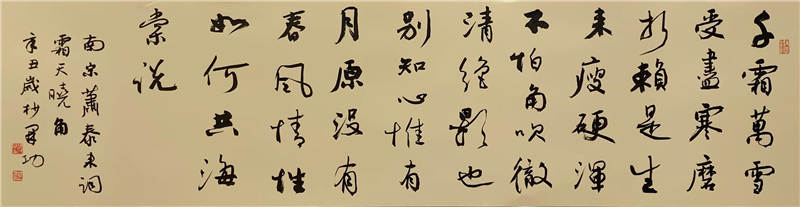 千霜萬雪
受盡寒磨
折賴是生
来瘦硬渾
不怕角吹徹
清絕影也
别知心惟有
月原没有
春風情性
如何共海
棠说
南宋蕭泰来词
霜天曉角
辛丑歲杪